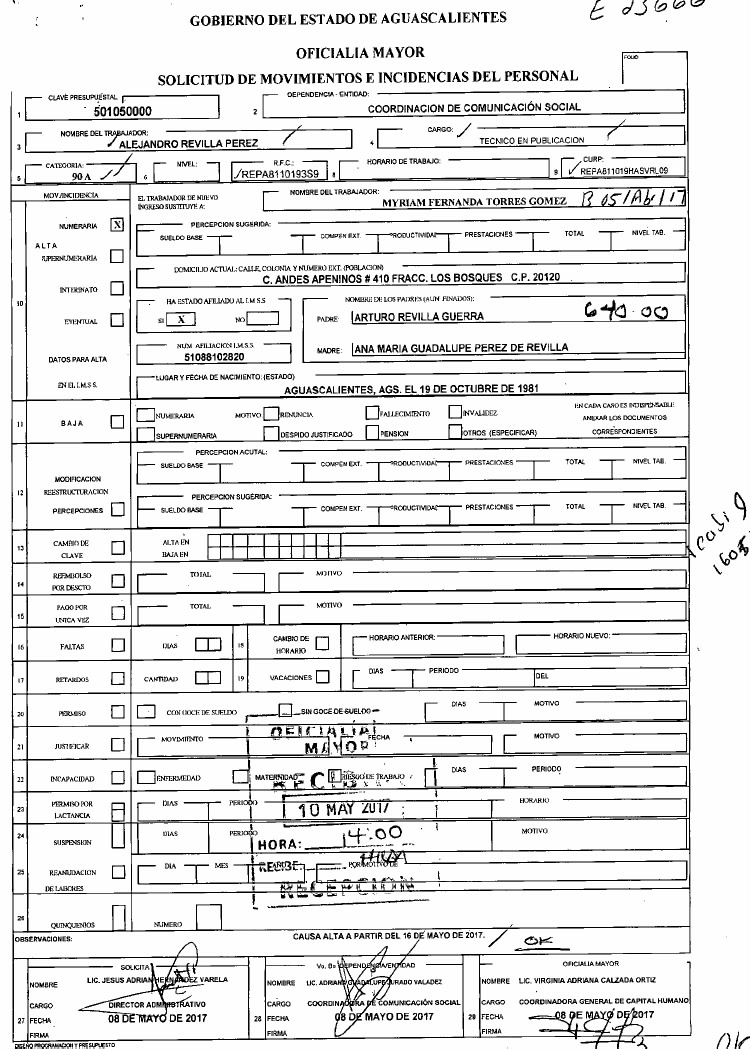 E 23666
GOBIERNO DEL ESTADO DE AGUASCALIENTES
OFICIALIA MAYOR
FOLIO
SOLICITUD DE MOVIMIENTOS E INCIDENCIAS DEL PERSONAL
CLAVE PRESUPUESTAL
DEPENDENCIA - ENTIDAD:
1 501050000 2 COORDINACION DE COMUNICACIÓN SOCIAL
NOMBRE DEL TRABAJADOR: CARGO:
3 ALEJANDRO REVILLA PEREZ 4 TECNICO EN PUBLICACION
CATEGORIA: NIVEL: R.F.C.: HORARIO DE TRABAJO: CURP:
5 90 A 6 REPA8110193S9 8 9 REPA811019HASVRL09
MOV./INCIDENCIA EL TRABAJADOR DE NUEVO INGRESO SUSTITUYE A: NOMBRE DEL TRABAJADOR:
MYRIAM FERNANDA TORRES GOMEZ B 05/Ab/17
NUMERARIA X PERCEPCION SUGERIDA:
SUELDO BASE COMPEN EXT. PRODUCTIVIDAD PRESTACIONES TOTAL NIVEL TAB.
ALTA
SUPERNUMERARIA
DOMICILIO ACTUAL: CALLE, COLONIA Y NUMERO EXT. (POBLACION)
C. ANDES APENINOS # 410 FRACC. LOS BOSQUES C.P. 20120
INTERINATO
10 HA ESTADO AFILIADO AL I.M.S.S. NOMBRE DE LOS PADRES (AUN FINADOS):
EVENTUAL SI X NO PADRE: ARTURO REVILLA GUERRA 640.00
NUM AFILIACION I.M.S.S.
DATOS PARA ALTA 51088102820 MADRE: ANA MARIA GUADALUPE PEREZ DE REVILLA
EN EL I.M.S.S. LUGAR Y FECHA DE NACIMIENTO: (ESTADO)
AGUASCALIENTES, AGS. EL 19 DE OCTUBRE DE 1981
11 BAJA NUMERARIA MOTIVO RENUNCIA FALLECIMIENTO INVALIDEZ EN CADA CASO ES INDISPENSABLE
ANEXAR LOS DOCUMENTOS
SUPERNUMERARIA DESPIDO JUSTIFICADO PENSION OTROS (ESPECIFICAR) CORRESPONDIENTES
PERCEPCION ACUTAL:
SUELDO BASE COMPEN EXT. PRODUCTIVIDAD PRESTACIONES TOTAL NIVEL TAB.
MODIFICACION
12 REESTRUCTURACION
PERCEPCION SUGERIDA:
PERCEPCIONES SUELDO BASE COMPEN EXT. PRODUCTIVIDAD PRESTACIONES TOTAL NIVEL TAB.
13 CAMBIO DE CLAVE ALTA EN
BAJA EN
14 REEMBOLSO POR DESCTO TOTAL MOTIVO
15 PAGO POR UNICA VEZ TOTAL MOTIVO
16 FALTAS DIAS 18 CAMBIO DE HORARIO HORARIO ANTERIOR: HORARIO NUEVO:
17 RETARDOS CANTIDAD 19 VACACIONES DIAS PERIODO DEL
20 PERMISO CON GOCE DE SUELDO SIN GOCE DE SUELDO DIAS MOTIVO
21 JUSTIFICAR MOVIMIENTO FECHA MOTIVO
OFICIALIA
MAYOR
22 INCAPACIDAD ENFERMEDAD MATERNIDAD RIESGO DE TRABAJO DIAS PERIODO
23 PERMISO POR LACTANCIA DIAS PERIODO HORARIO
10 MAY 2017
24 SUSPENSION DIAS PERIODO MOTIVO
HORA: 14:00
25 REANUDACION DE LABORES DIA MES POR MOTIVO DE
RECIBE:
RECEPCION
26 QUINQUENIOS NUMERO
OBSERVACIONES: CAUSA ALTA A PARTIR DEL 16 DE MAYO DE 2017. OK
SOLICITA Vo. Bo DEPENDENCIA/ENTIDAD OFICIALIA MAYOR
NOMBRE LIC. JESUS ADRIAN HERNANDEZ VARELA NOMBRE LIC. ADRIANA GUADALUPE JURADO VALADEZ NOMBRE LIC. VIRGINIA ADRIANA CALZADA ORTIZ
CARGO DIRECTOR ADMINISTRATIVO CARGO COORDINADORA DE COMUNICACIÓN SOCIAL CARGO COORDINADORA GENERAL DE CAPITAL HUMANO
27 FECHA 08 DE MAYO DE 2017 28 FECHA 08 DE MAYO DE 2017 29 FECHA 08 DE MAYO DE 2017
FIRMA FIRMA FIRMA
DISEÑO PROGRAMACION Y PRESUPUESTO
OK